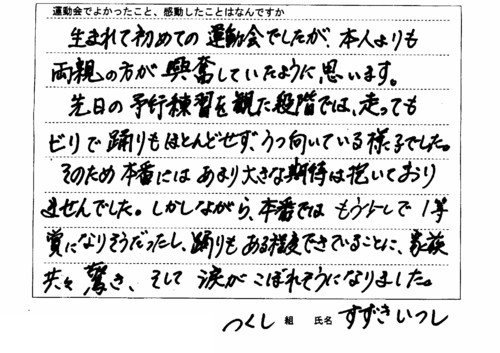 運動会でよかったこと、感動したことはなんですか
生まれて初めての運動会でしたが、本人よりも
両親の方が興奮していたように思います。
先日の予行練習を観た段階では、走っても
ビリで踊りもほとんどせず、うつ向いている様子でした。
そのため本番にはあまり大きな期待は抱いており
ませんでした。しかしながら、本番ではもう少しで1等
賞になりそうだったし、踊りもある程度できていることに、家族
共々驚き、そして涙がこぼれそうになりました。
つくし 組 氏名 すずきいつし